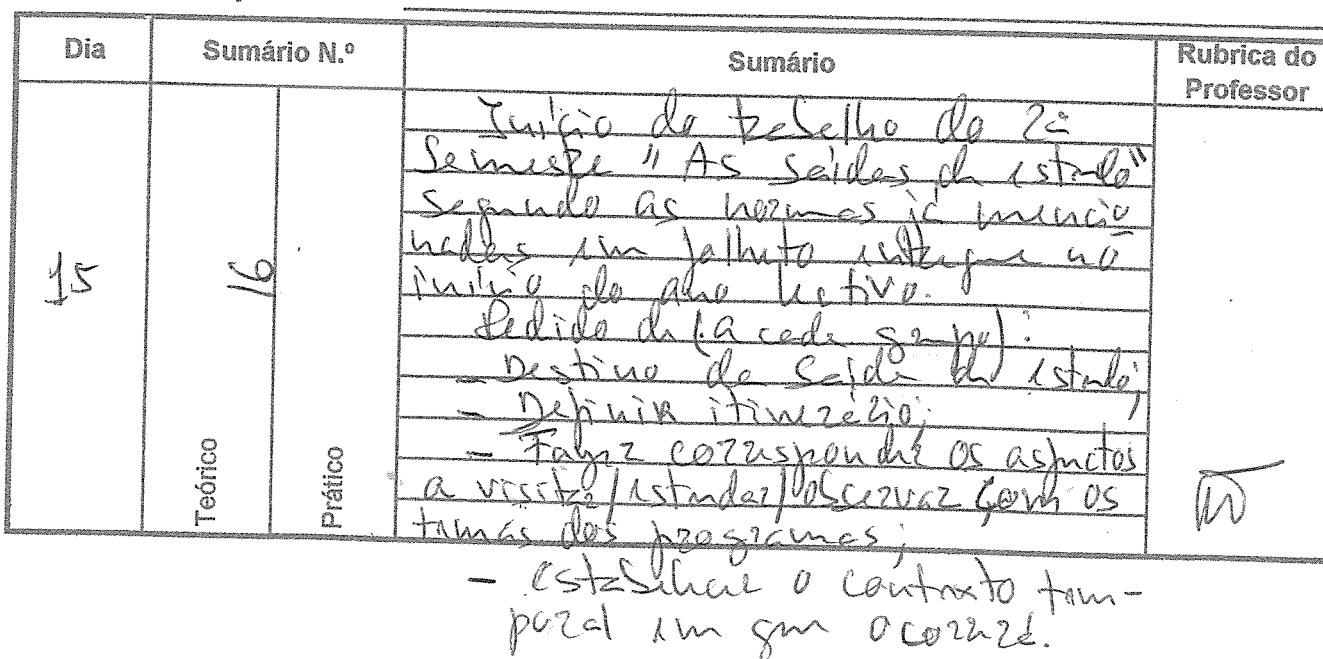 Dia
Sumário N.º
Sumário
Rubrica do
Professor
Início do trabalho do 2º
Semestre "As saídas de estudo"
segundo as normas já mencio
nadas em folheto entregue no
início do ano lectivo.
Pedido de (a cada grupo):
- Destino da saída de estudo;
- Definir itinerário;
- Fazer corresponder os aspectos
a visitar/estudar/observar com os
temas dos programas;
- estabelecer o contexto tem-
poral em que ocorrerá.
15
16
Teórico
Prático